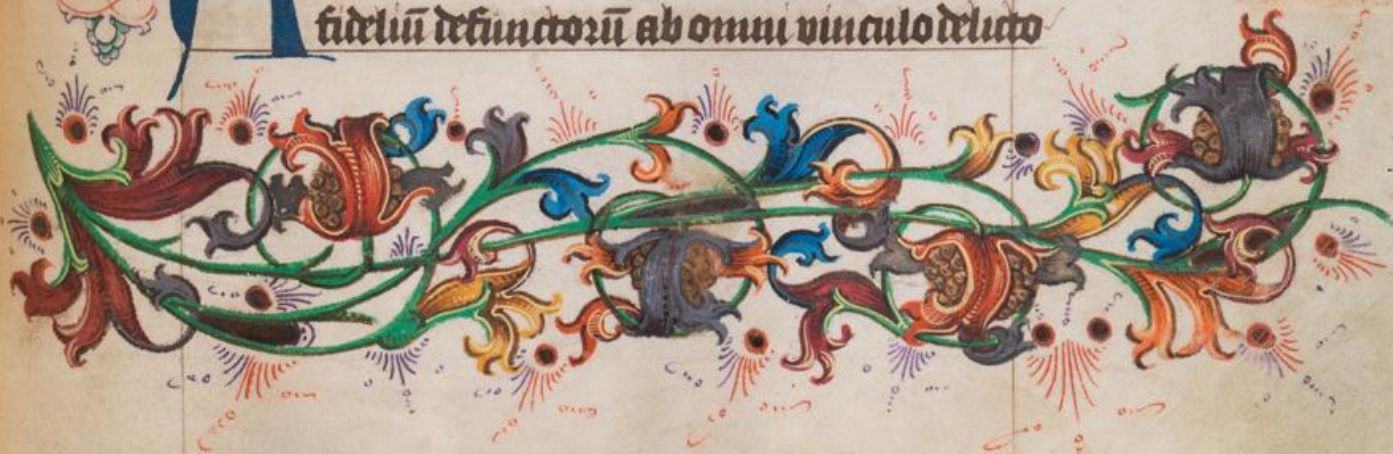 fideliū defunctorū ab omni vinculo delicto